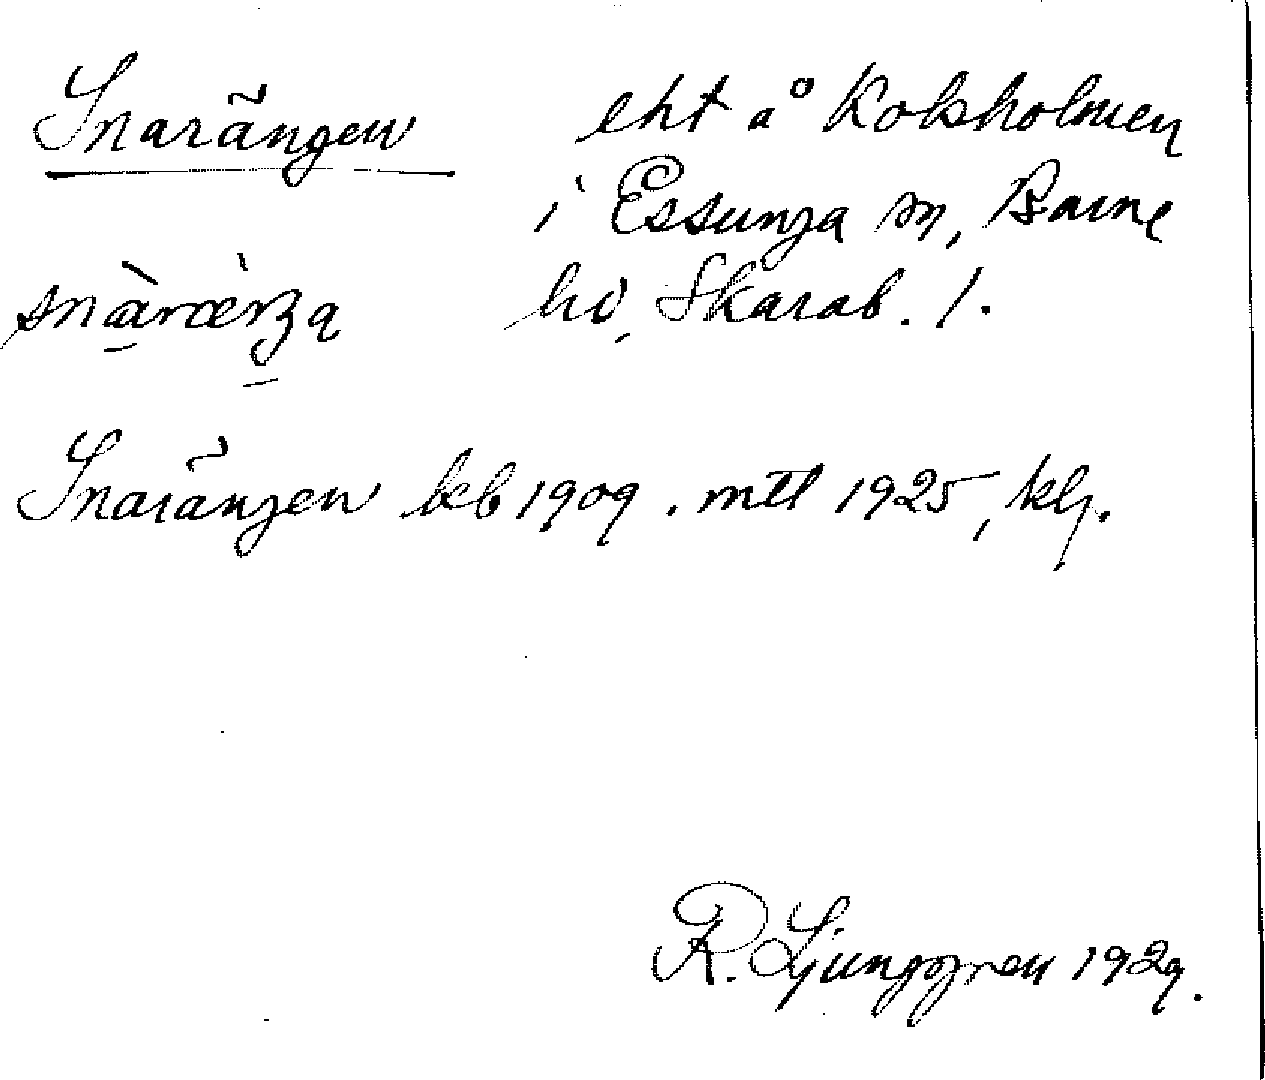 Snarängen
eht å Kolsholmen
i Essunga sn, Barne
hd, Skarab. l.
Snarängen kb 1909. mtl 1925, klg.
R. Ljunggren 1929.